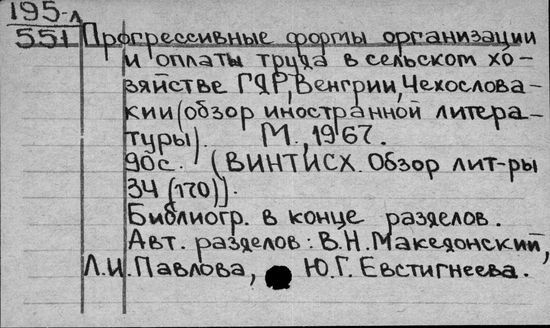 195-л
551 Прогрессивные формы организации
и оплаты труда в сельском хо-
зяйстве ГДР, Венгрии, Чехослова-
кии (обзор иностранной литера-
туры). М., 1967.
90с. (ВИНТИСХ. Обзор лит-ры
34 (170)).
Библиогр. в конце разделов.
Авт. разделов: В.Н. Македонский,
Л.И. Павлова, Ю.Г. Евстигнеева.